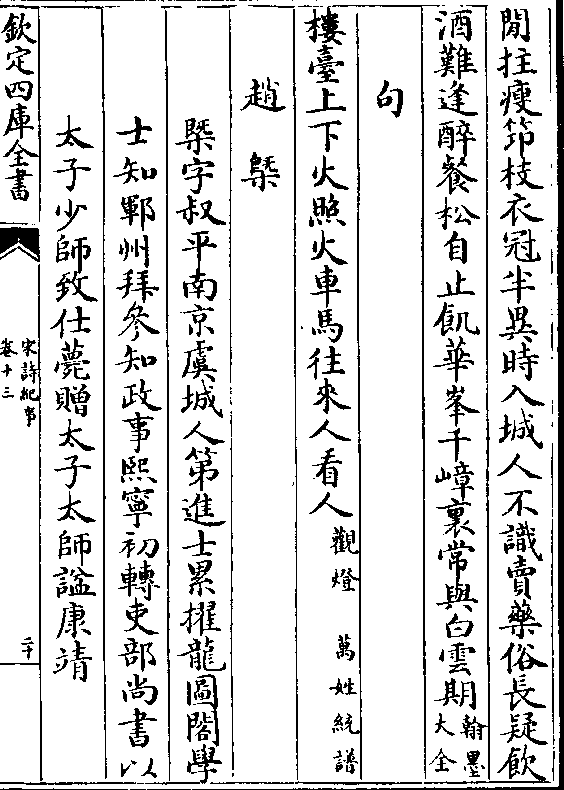 閒拄瘦笻枝衣冠半異時入城人不識賣藥俗長疑飲
酒難逢醉餐松自止飢華峯千嶂裏常與白雲期翰墨大全
句
樓臺上下火照火車馬往來人看人觀燈　萬姓統譜
趙槩
槩字叔平南京虞城人第進士累擢龍圖閣學
士知鄆州拜參知政事熙寧初轉吏部尚書以
太子少師致仕薨贈太子太師諡康靖
欽定四庫全書
宋詩紀事
卷十三
二十